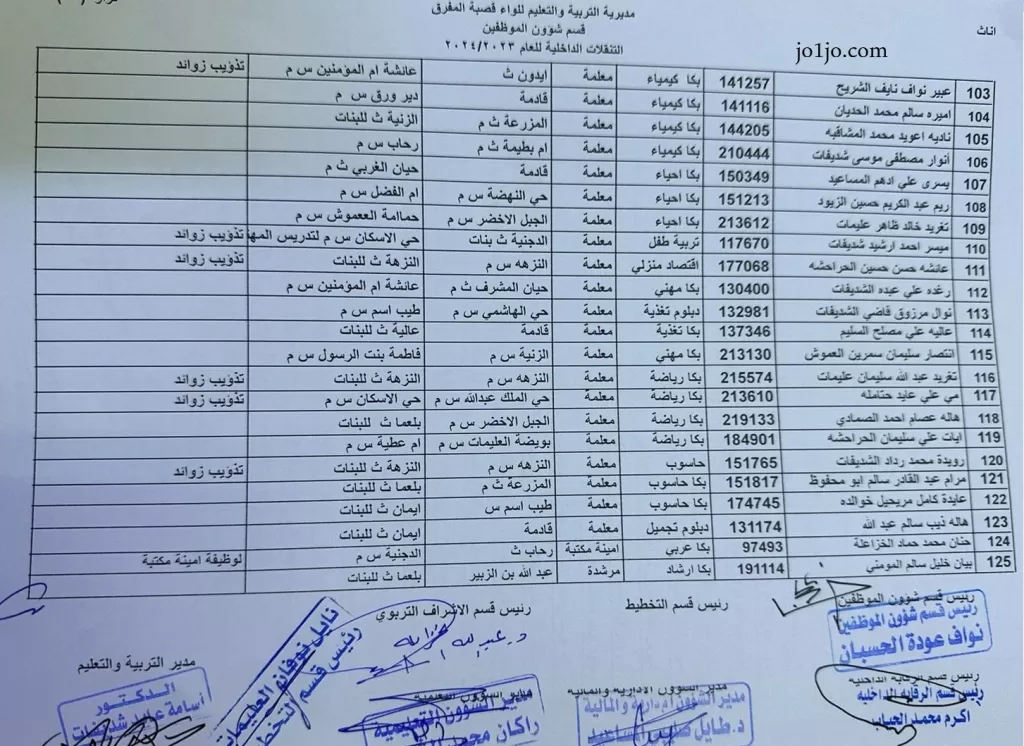 مديرية التربية والتعليم للواء قصبة المفرق
قسم شؤون الموظفين
اناث
التنقلات الداخلية للعام ٢٠٢٤/٢٠٢٣
jo1jo.com
103 عبير نواف نايف الشريح 141257 بكا كيمياء معلمة ايدون ث عائشة ام المؤمنين س م تذؤيب زوائد
104 اميره سالم محمد الحديان 141116 بكا كيمياء معلمة قادمة دير ورق س م
105 ناديه اعويد محمد المشاقبه 144205 بكا كيمياء معلمة المزرعة ث م الزنية ث للبنات
106 أنوار مصطفى موسى شديفات 210444 بكا كيمياء معلمة ام بطيمة ث م رحاب س م
107 يسرى علي ادهم المساعيد 150349 بكا احياء معلمة قادمة حيان الغربي ث م
108 ريم عبد الكريم حسين الزيود 151213 بكا احياء معلمة حي النهضة س م ام الفضل س م
109 تغريد خالد ظاهر عليمات 213612 بكا احياء معلمة الجبل الاخضر س م حماامة العموش س م
110 ميسر احمد ارشيد شديفات 117670 تربية طفل معلمة الدجنية ث بنات حي الاسكان س م لتدريس المها تذؤيب زوائد
111 عائشه حسن حسين الحراحشه 177068 اقتصاد منزلي معلمة النزهه س م النزهة ث للبنات تذؤيب زوائد
112 رغده علي عبده الشديفات 130400 بكا مهني معلمة حيان المشرف ث م عائشة ام المؤمنين س م
113 نوال مرزوق قاضي الشديفات 132981 دبلوم تغذية معلمة حي الهاشمي س م طيب اسم س م
114 عاليه علي مصلح السليم 137346 بكا تغذية معلمة قادمة عالية ث للبنات
115 انتصار سليمان سمرين العموش 213130 بكا مهني معلمة الزنية س م فاطمة بنت الرسول س م
116 تغريد عبد الله سليمان عليمات 215574 بكا رياضة معلمة النزهه س م النزهة ث للبنات تذؤيب زوائد
117 مي علي عايد حتامله 213610 بكا رياضة معلمة حي الملك عبدالله س م حي الاسكان س م تذؤيب زوائد
118 هاله عصام احمد الصمادي 219133 بكا رياضة معلمة الجبل الاخضر س م بلعما ث للبنات
119 ايات علي سليمان الحراحشه 184901 بكا رياضة معلمة بويضة العليمات س م ام عطية س م
120 رويدة محمد رداد الشديفات 151765 حاسوب معلمة النزهه س م النزهة ث للبنات تذؤيب زوائد
121 مرام عبد القادر سالم ابو محفوظ 151817 بكا حاسوب معلمة المزرعة ث م بلعما ث للبنات
122 عايدة كامل مريحيل خوالده 174745 بكا حاسوب معلمة طيب اسم س ايمان ث للبنات
123 هاله ذيب سالم عبد الله 131174 دبلوم تجميل معلمة قادمة ايمان ث للبنات
124 حنان محمد حماد الخزاعلة 97493 بكا عربي امينة مكتبة رحاب ث الدجنية س م لوظيفة امينة مكتبة
125 بيان خليل سالم المومني 191114 بكا ارشاد مرشدة عبد الله بن الزبير بلعما ث للبنات
رئيس قسم شؤون الموظفين
رئيس قسم التخطيط
رئيس قسم الاشراف التربوي
مدير التربية والتعليم
رئيس قسم شؤون الموظفين
نواف عودة الحسبان
نايل نوفان العليمات
رئيس قسم التخطيط
رئيس قسم الرقابه الداخلية
رئيس قسم الرقابه الداخليه
اكرم محمد الحباب
مدير الشؤون الادارية والمالية
مدير الشؤون الإدارية والمالية
مدير الشؤون التعليمية
مدير الشؤون التعليمية
راكان محمد
الدكتور